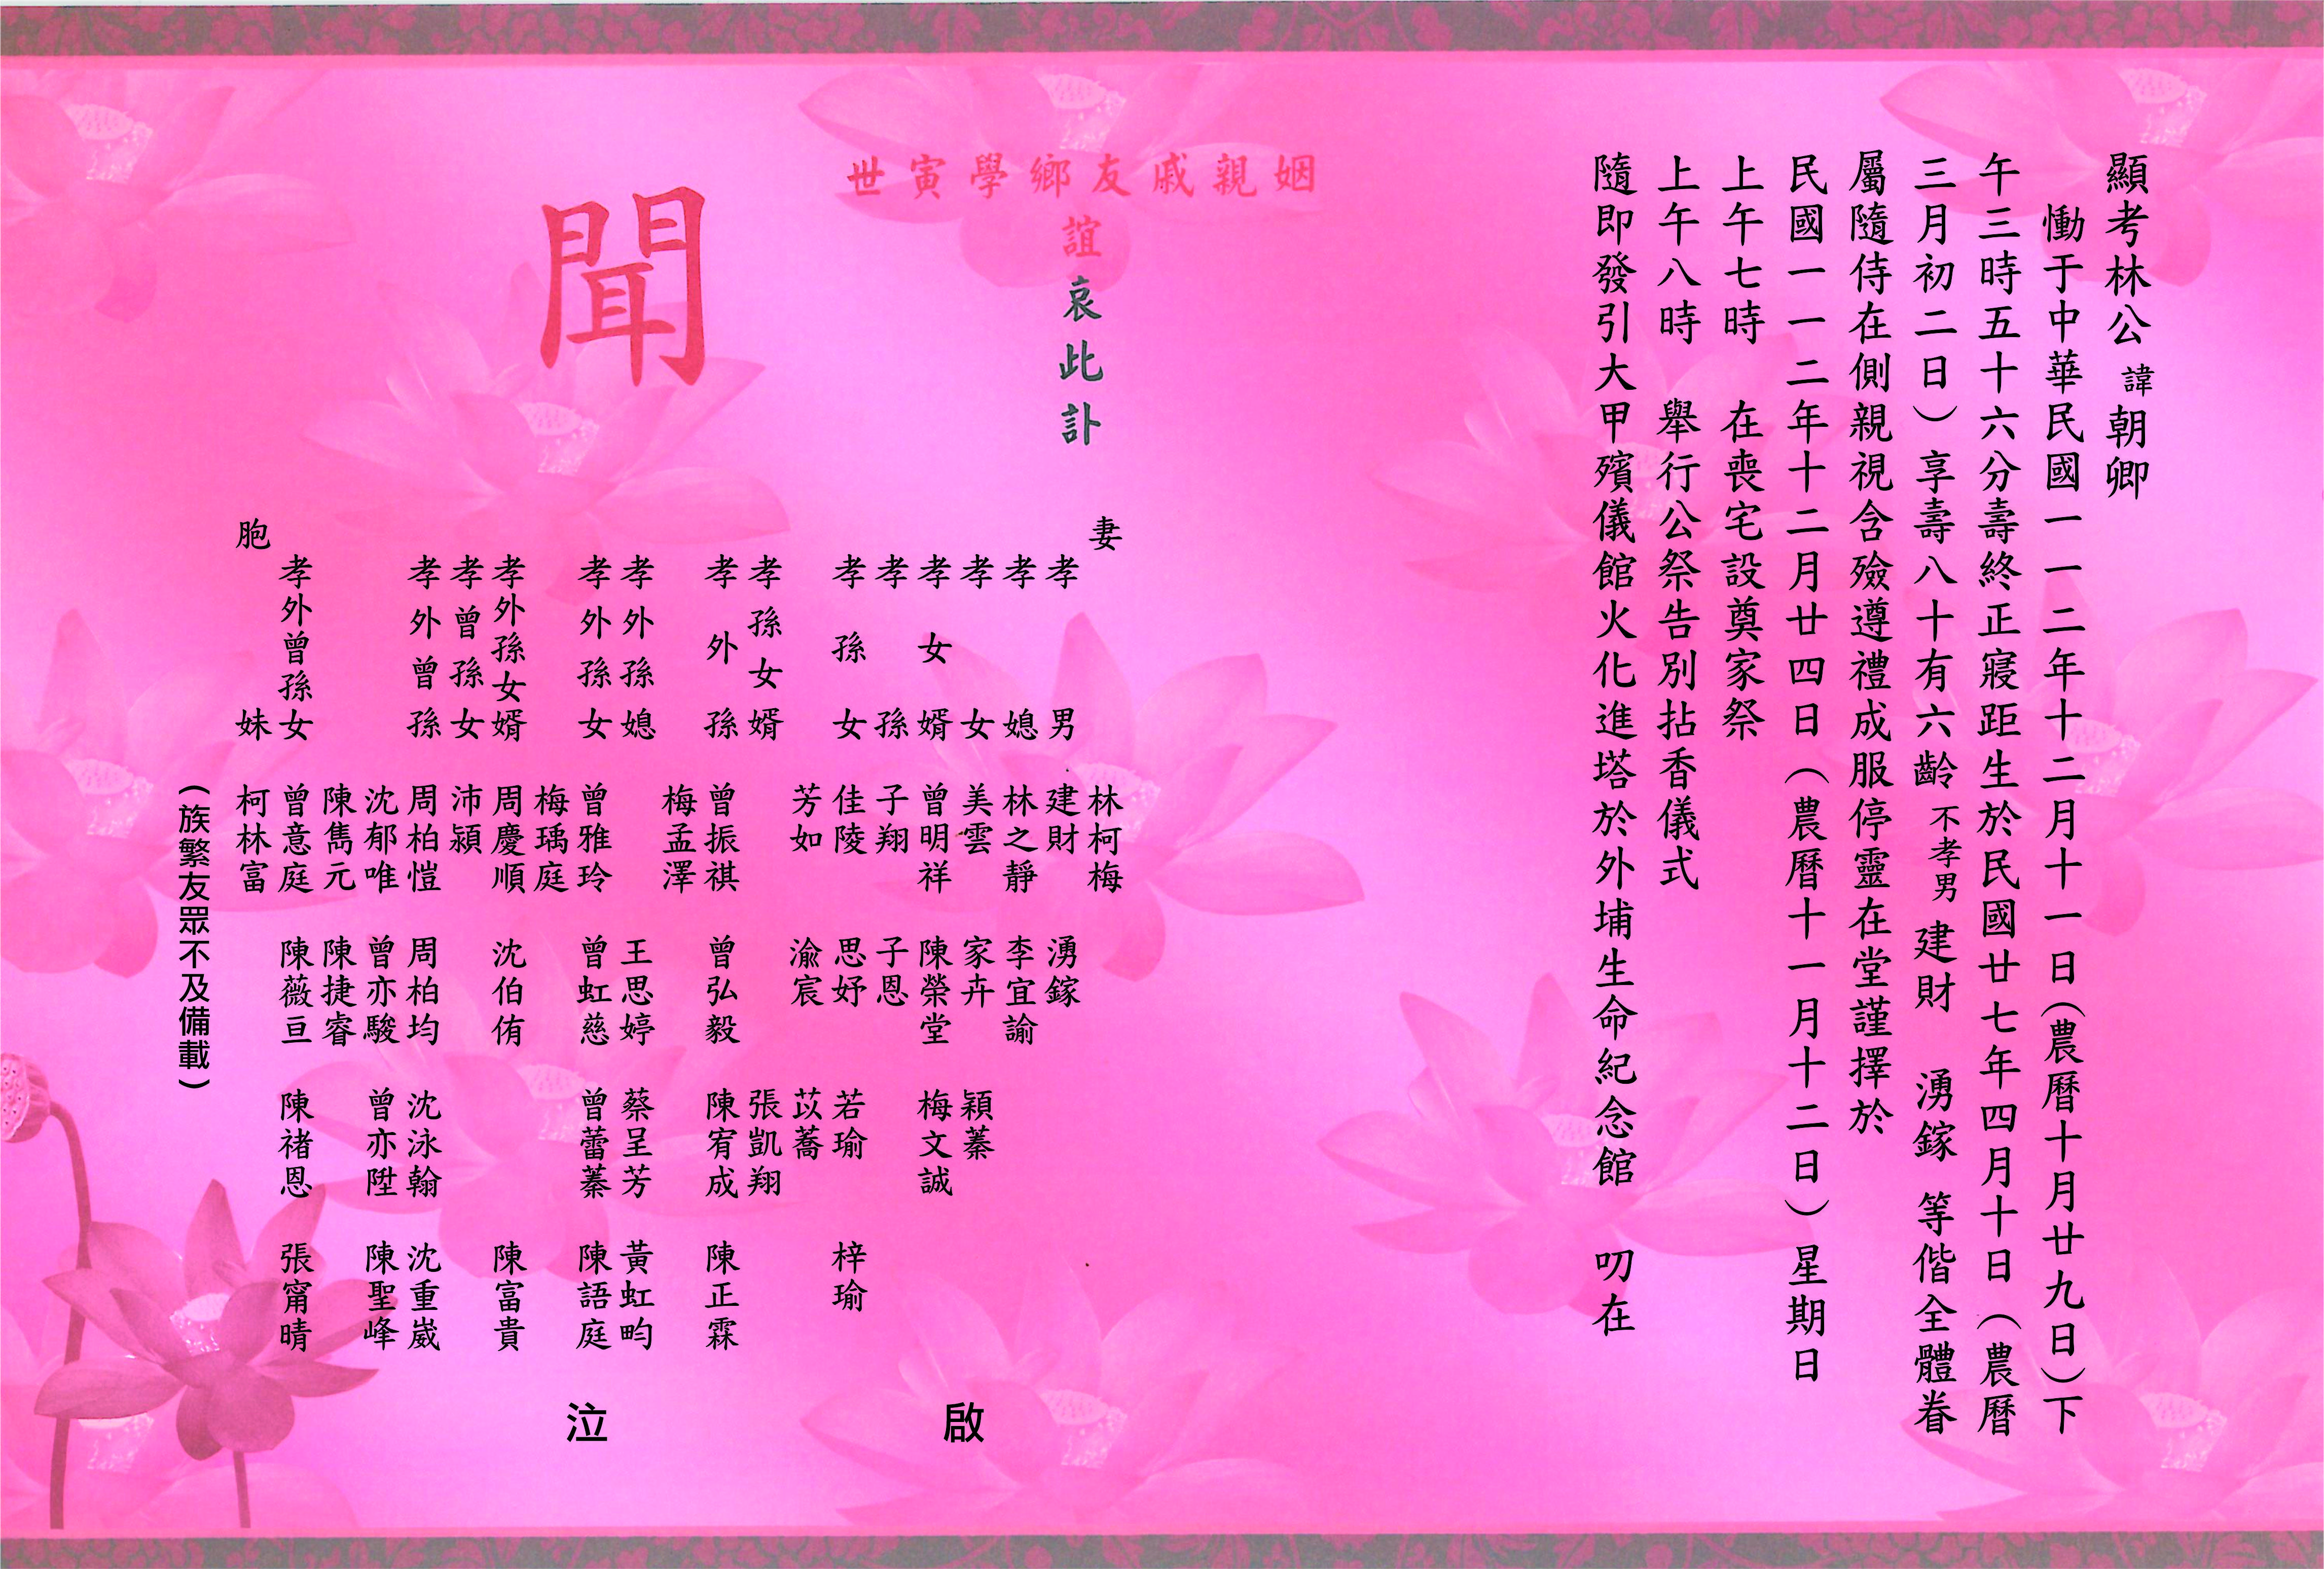 顯考林公諱朝卿
慟于中華民國一一二年十二月十一日（農曆十月廿九日）下
午三時五十六分壽終正寢距生於民國廿七年四月十日（農曆
三月初二日）享壽八十有六齡不孝男建財　湧鎵　等偕全體眷
屬隨侍在側親視含殮遵禮成服停靈在堂謹擇於
民國一一二年十二月廿四日（農曆十一月十二日）星期日
上午七時　在喪宅設奠家祭
上午八時　舉行公祭告別拈香儀式
隨即發引大甲殯儀館火化進塔於外埔生命紀念館　叨在
姻親戚友鄉學寅世
誼哀此訃
聞
妻　林柯梅
孝男　建財　湧鎵
孝媳　林之靜　李宜諭
孝女　美雲　家卉　穎蓁
孝女婿　曾明祥　陳榮堂　梅文誠
孝孫　子翔　子恩
孝孫女　佳陵　思妤　若瑜　梓瑜
芳如　渝宸　苡蕎
孝孫女婿　張凱翔
孝外孫　曾振祺　曾弘毅　陳宥成　陳正霖
梅孟澤
孝外孫媳　王思婷　蔡呈芳　黃虹畇
孝外孫女　曾雅玲　曾虹慈　曾蕾蓁　陳語庭
梅瑀庭
孝外孫女婿　周慶順　沈伯侑　陳富貴
孝曾孫女　沛潁
孝外曾孫　周柏愷　周柏均　沈泳翰　沈重崴
沈郁唯　曾亦駿　曾亦陞　陳聖峰
陳雋元　陳捷睿
孝外曾孫女　曾意庭　陳薇亘　陳禇恩　張甯晴
胞妹　柯林富
（族繁友眾不及備載）
泣啟